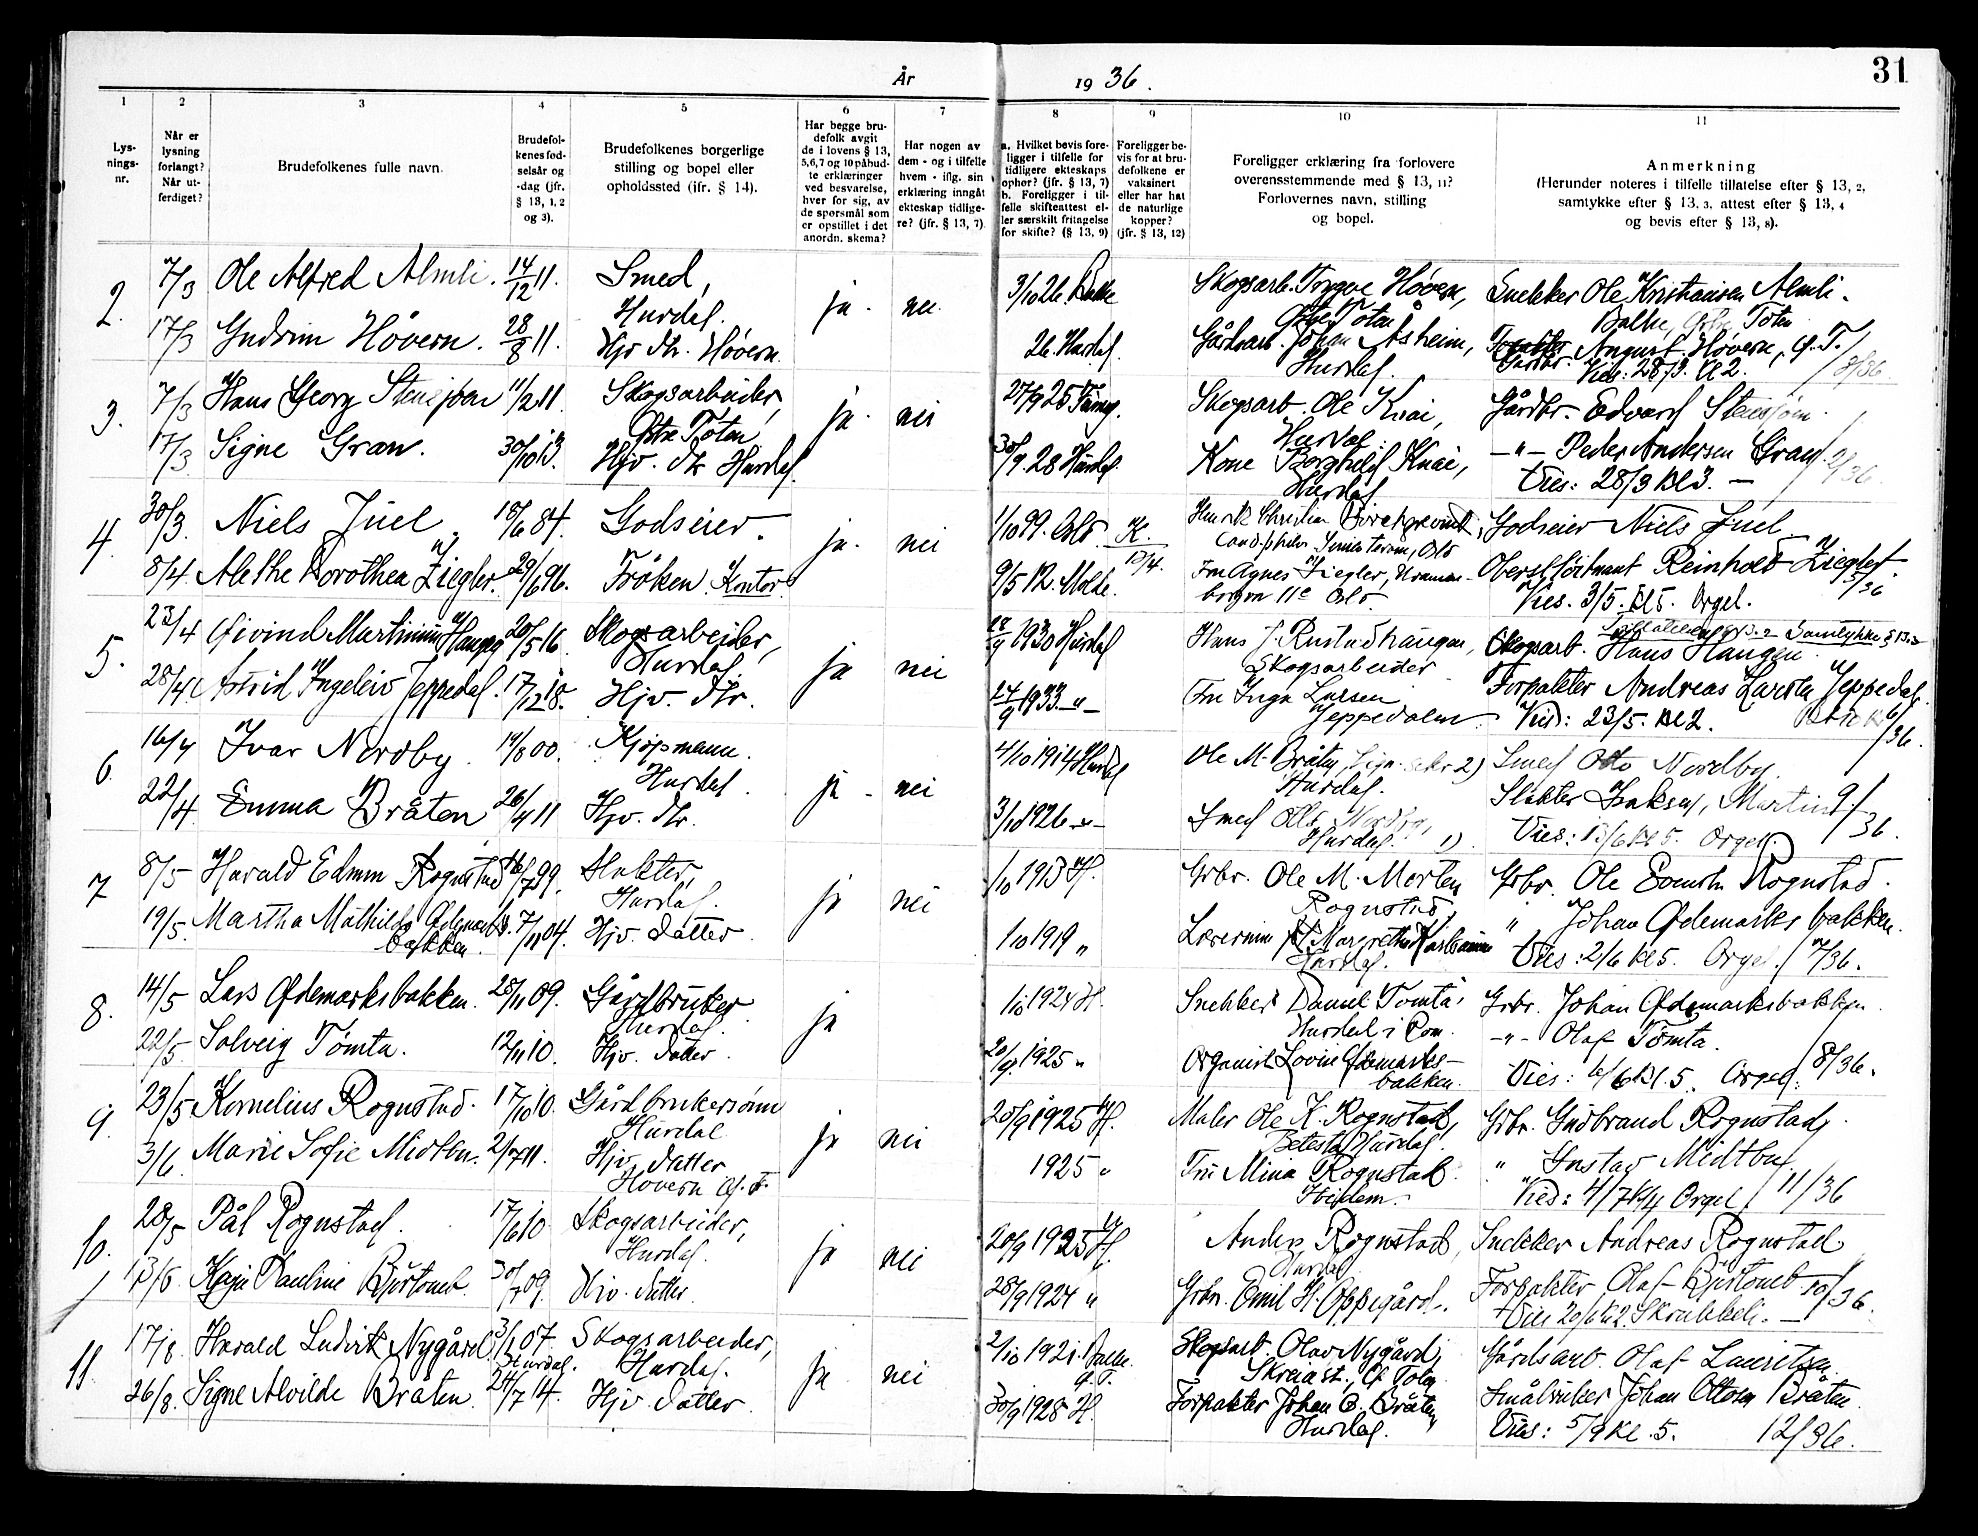 År 1936.
31
1 2 3 4 5 6 7 8 9 10 11
Lys-
nings-
nr.
Når er
lysning
forlangt?
Når ut-
ferdiget?
Brudefolkenes fulle navn.
Brudefol-
kenes fød-
selsår og
-dag (jfr.
§ 13, 1, 2
og 3).
Brudefolkenes borgerlige
stilling og bopel eller
opholdssted (ifr. § 14).
Har begge bru-
defolk avgit
de i lovens § 13,
5,6,7 og 10 påbud-
te erklæringer
ved besvarelse,
hver for sig, av
de spørsmål som
er opstillet i det
anordn. skema?
Har nogen av
dem - og i tilfelle
hvem - iflg. sin
erklæring inngått
ekteskap tidlige-
re? (jfr. § 13, 7).
a. Hvilket bevis fore-
ligger i tilfelle for
tidligere ekteskaps
ophør? (jfr. § 13, 7)
b. Foreligger i til-
felle skifteattest el-
ler særskilt fritagelse
for skifte? (§ 13, 9)
Foreligger be-
vis for at bru-
defolkene er
vaksinert
eller har hat
de naturlige
kopper?
(jfr. § 13, 12)
Foreligger erklæring fra forlovere
overensstemmende med § 13, 11?
Forlovernes navn, stilling
og bopel.
Anmerkning
(Herunder noteres i tilfelle tillatelse efter § 13, 2,
samtykke efter § 13, 3, attest efter § 13, 4
og bevis efter § 13, 8).
2. 7/3 Ole Alfred Almli. 14/12 11. Smed, Hurdal. ja. nei. 3/10 26 Balke Skogsarb. Trygve Høvern, Østre Toten Snekker Ole Kristiansen Almli.
Balke, Østre Toten
17/3 Gudrun Høvern. 28/8 11. Hjv. dtr. Høvern. 26. Hurdal. Gårdsarb. Johan Åsheim, Hurdal. Gårdbr. August Høvern, Ø.T.
Vies: 28/3. Kl 2. 3/36.
3. 7/3 Hans Georg 11/2 11. Skogsarbeider, Østre Toten ja. nei 27/9 25 Skogsarb. Ole Knai, Hurdal. Gårdbr. Edvard
17/3 Signe Gran. 30/10 13. Hjv. dtr Hurdal. 30/9. 28 Hurdal. Kone Borghild Knai, Hurdal. -"- Peder Andersen Gran
Vies: 28/3 Kl 3. — 2/36
4. 30/3 Niels Juel 18/6 84. Godseier. ja. nei 1/10 99. Oslo. K. Henrik Christian Oslo Godseier Niels Juel
8/4. Alethe Dorothea Ziegler. 29/6 96. Frøken. Kontor 9/5 12. Molde. 15/4. Fru Agnes Ziegler, Kramm-
borgvn 11c Oslo. Oberstløitnant Reinholdt Ziegler.
Vies. 3/5. Kl 5. Orgel. 5/36
5. 23/4 Øivind Martinius Haugen 20/5 16. Skogsarbeider, Hurdal. ja nei 1930 Hurdal Hans J. Rustadhaugen, Skogsarbeider Samtykke § 13.3
Skogsarb. Hans Haugen.
28/4 Astrid Ingeleiv Jeppedal. 17/12 18. Hjv. dtr. 24/9 1933 -"- Fru Inga Larsen Jeppedalen Forpakter Andreas Larsen Jeppedal.
Vied: 23/5. Kl 2. 6/36.
6. 16/4 Ivar Nordby. 14/8 00. Kjøpmann. Hurdal. ja. nei 4/10 1914 Hurdal Ole M. Bråten, Hurdal. Smed Otto Nordby.
22/4 Emma Bråten 26/4 11 Hjv. dtr. 3/10 1926 -"- Smed Otto Nordby, Hurdal. 1) Slakter Isaksen, Martin
Vies: 13/6 Kl 5. Orgel. 9/36.
7 8/5 Harald Edmin Rognstad 16/7 99. Slakter, Hurdal. ja nei 1/10 1913 H. Grbr. Ole M. Morten Rognstad, Grbr. Ole Evensen Rognstad.
19/5. Martha Mathilde Ødemarks-
bakken. 7/11 04. Hjv. datter 1/10 1919 " Lærerinne Hurdal. " Johan Ødemarksbakken.
Vies: 2/6 Kl 5. Orgel. 7/36.
8. 14/5 Lars Ødemarksbakken. 28/11 09. Gårdbruker Hurdal. ja 1/10 1924 H. Snekker Daniel Tømta, Hurdal i Rom. Grbr. Johan Ødemarksbakken
22/5 Solveig Tømta. 12/11 10. Hjv. datter. 20/9. 1925 " Organist Lovise Ødemarks-
bakken. -"- Olaf Tømta.
Vies: 6/6 Kl. 5. Orgel. 8/36.
9. 23/5 Kornelius Rognstad. 17/10 10. Gårdbrukersønn Hurdal ja nei 20/9 1925 H. Maler Ole K. Rognstad, Betesta, Hurdal. Grbr. Gudbrand Rognstad,
3/6 Marie Sofie Midtbu. 2/7 11. Hjv. datter Høvern Ø. T. 1925 " Fru Mina Rognstad. " Gustav Midtbu,
Vied: 4/7 Kl 4 Orgel 11/36
10. 28/5 Pål Rognstad. 17/6 10. Skogsarbeider, Hurdal. ja nei 20/9 1925 H. Anders Rognstad, Hurdal Snekker Andreas Rognstad
13/6. Kaja Pauline Bjørtomt. 30/7 09. Hjv. datter. 28/9 1924 " Grbr. Emil H. Oppegård. Forpakter Olaf Bjørtomt 10/36.
Vies 20/6 Kl 2. Skrukkeli. —
11. 17/8 Harald Ludvik Nygård 3/1 07. Hurdal. Skogsarbeider, Hurdal. ja nei 2/10 1921. Balke Ø.T. Skogsarb. Olav Nygård, Skreia st., Ø. Toten Gårdsarb. Olaf Lauritsen
26/8. Signe Alvilde Bråten. 24/7 14. Hjv datter. 30/9 1928 H. Forpakter Johan O. Bråten, Hurdal. Småbruker Johan Ottosen Bråten.
Vies: 5/9 Kl. 5. 12/36.